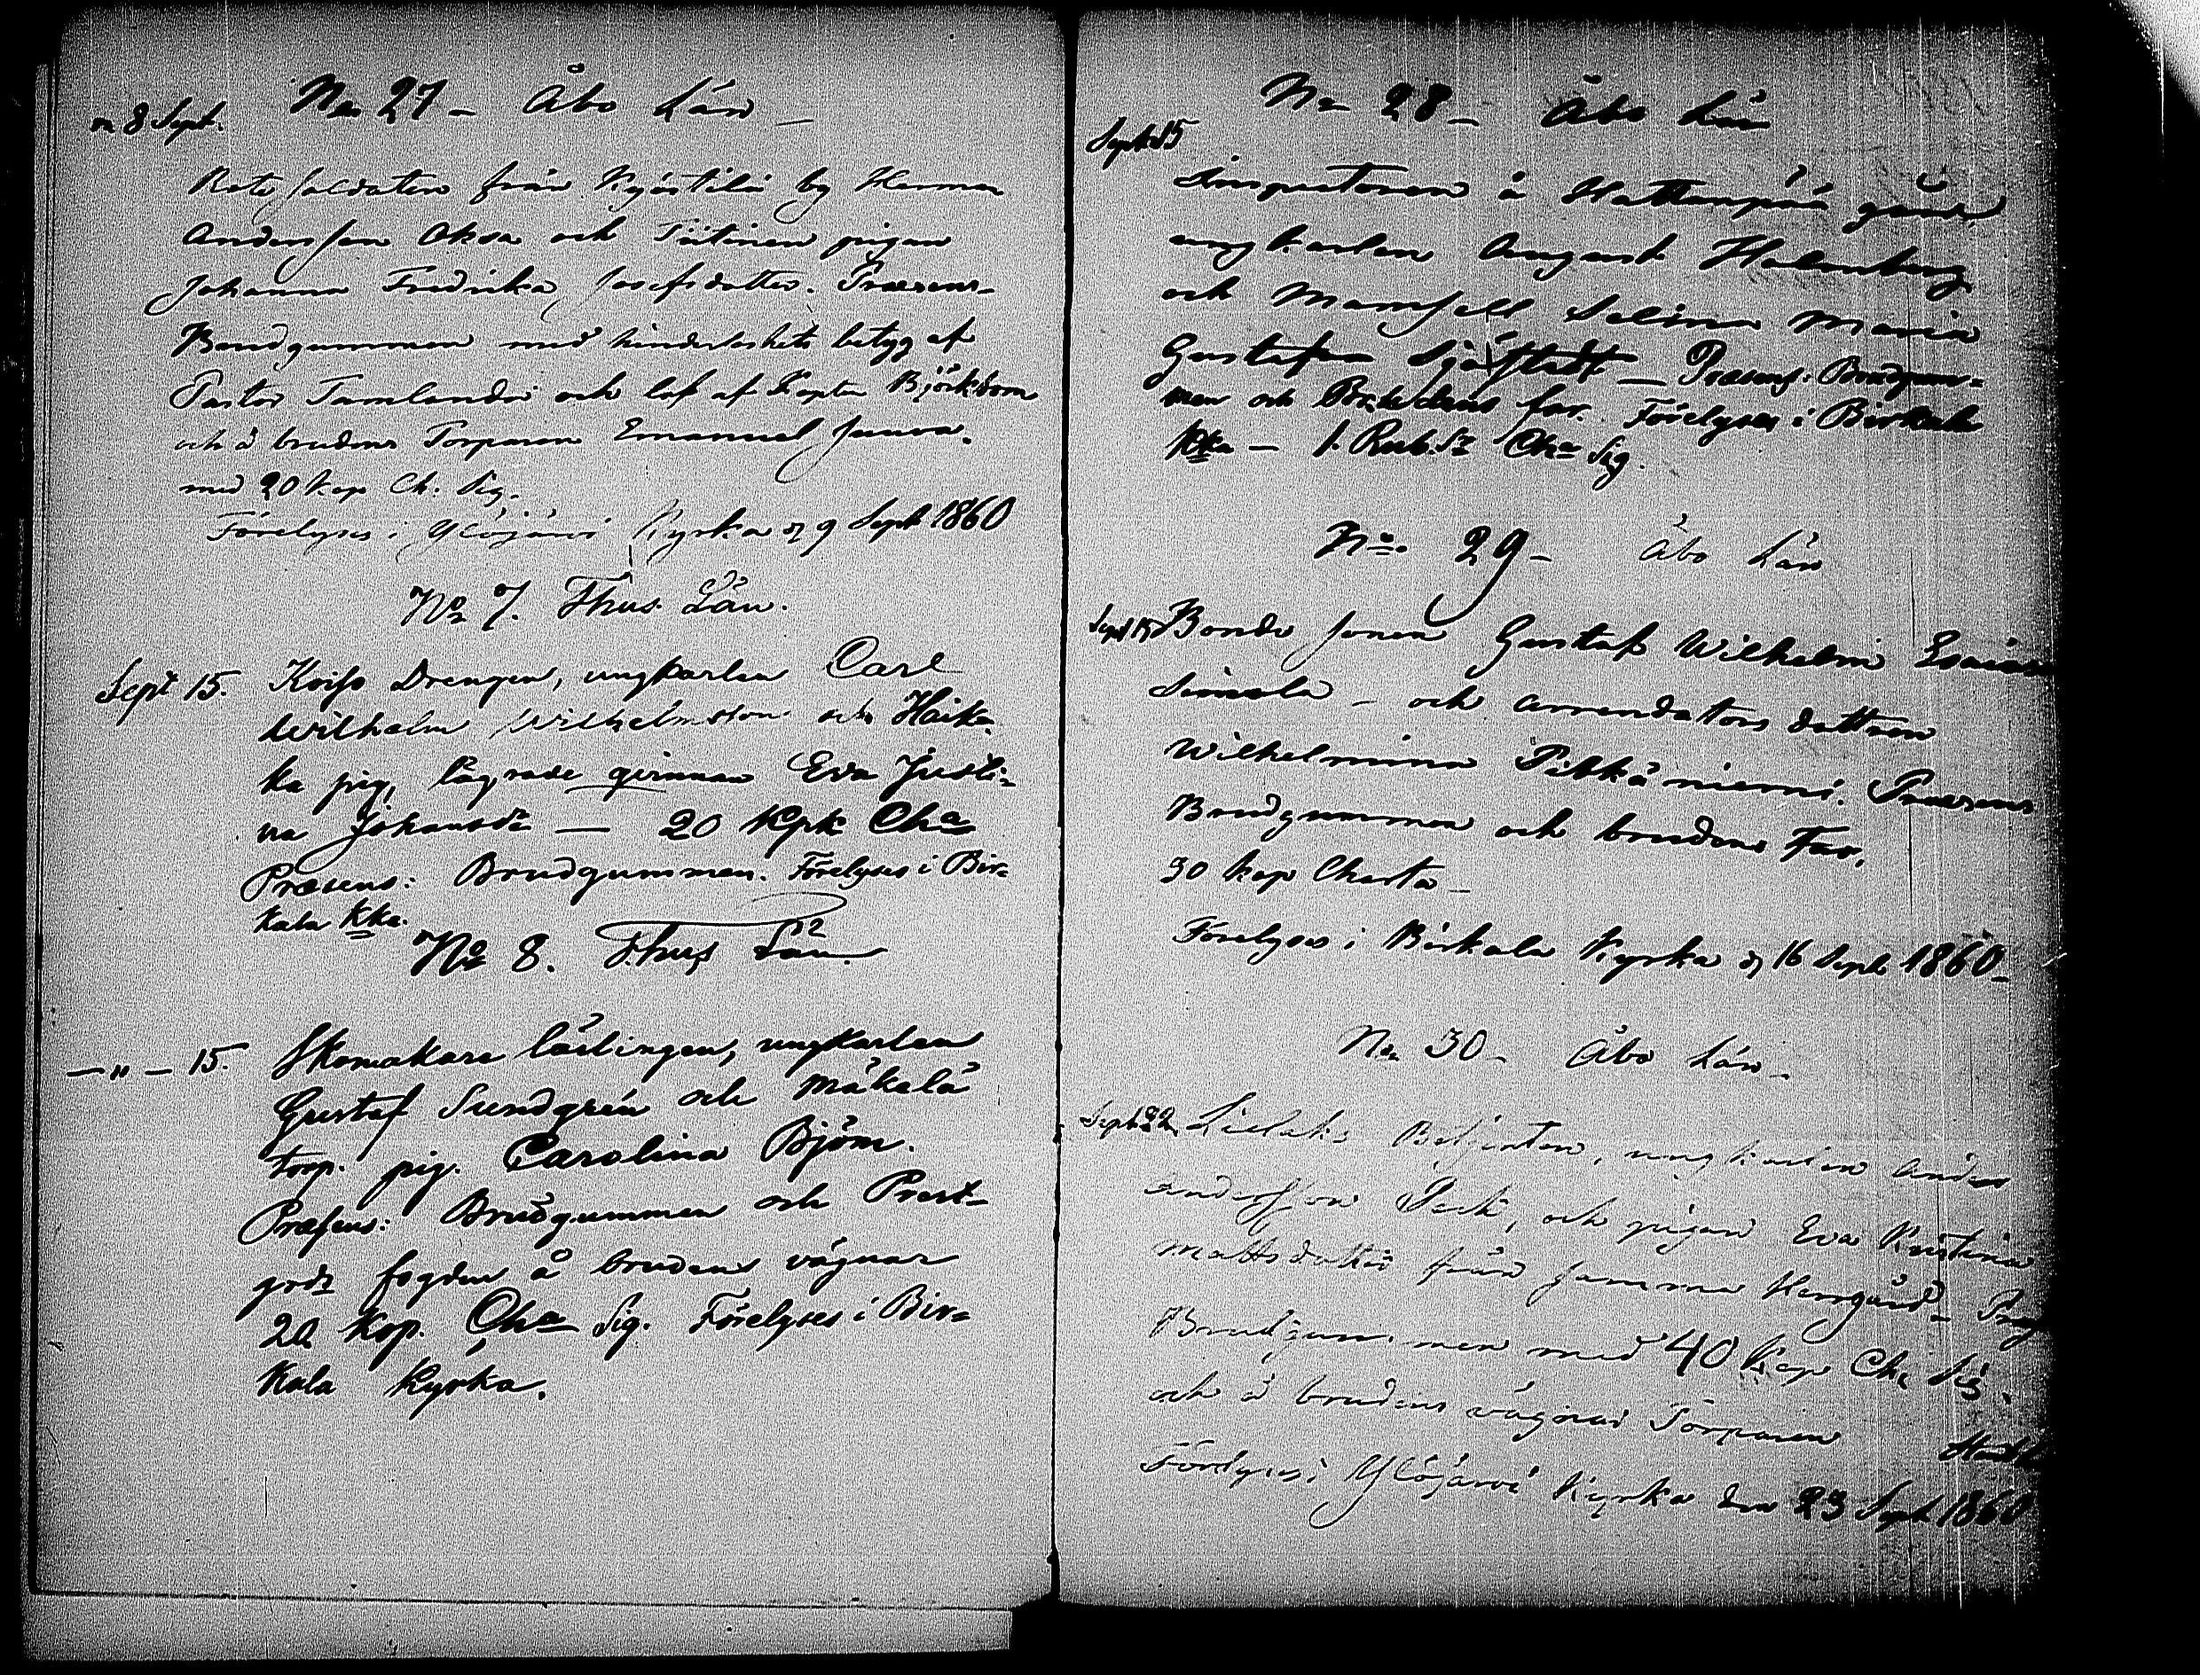 No 27 - Åbo Län -
8 Sept.
Rote soldaten från Kyöstilä by Herman
Andersson Oksa och Tiitinen pigan
Johanna Fredrika Josefsdotter. Præsens
Brudgummen med hinderlöshets betyg af
Pastor Tamlander och lof af Kapten Björkstam
och å brudens Torparen Emanuel Juura.
med 20 Kop Ch: Sig.
Förelyses i Ylöjärvi Kyrka d 9 Sept 1860
No 7. Thus Län.
Sept 15. Koiso Drengen, ungkarlen Carl
Wilhelm Wilhelmsson och Haika
ka pig, lägrade qvinnan Eva Justi-
na Johansdr — 20 Kpk Cha
Præsens: Brudgummen. Förelyses i Bir-
kala Kka.
No 8. Thus Län.
— " — 15. Skomakare lärlingen, ungkarlen
Gustaf Sundgrén och Mäkelä
torp. pig. Carolina Björn.
Præsens: Brudgummen och Prest-
grds fogden å brudens vägnar
20 Kop. Cha Sig. Förelyses i Bir-
kala Kyrka.
No 28 - Åbo Län
Sept 15
Inspectoren å Hattanpää gård
ungkarlen August Holmberg
och Mamsell Selima Maria
Gustafva Sjöstedt — Præsens: Brudgum-
men och Brudens far. Förelyses i Birkala
Kka — 1. Rub. Sr Cha Sig.
No 29 - Åbo Län
Sept 15 Bonde sonen Gustaf Wilhelm Esaias
Simola - och arrendators dottren
Wilhelmina Pitkäniemi. Præsens
Brudgummen och brudens far.
30 kop Charta -
Förelyses i Birkala Kyrka d 16 Sept 1860 -
No 30 - Åbo Län -
Sept 22. Lielaks Betjenten, ungkarlen Anders
Andersson Pesk, och pigan Eva Kristina
Mattsdotter från samma Herrgård - Præs
Brudgummen med 40 Kop Cha Sig.
och å brudens vägnar Torparen
Förelyses i Ylöjärvi Kyrka den 23 Sept 1860